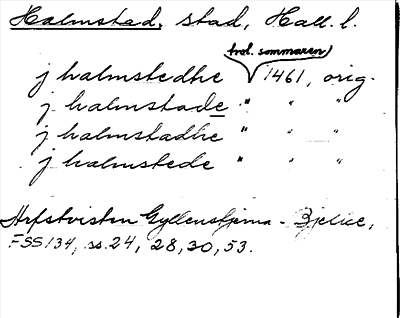 Halmstad, stad, Hall. l.
trol. sommaren
j halmstedhe 1461, orig.
j halmstade " " "
j halmstadhe " " "
j halmstede " " "
Arfstvisten Gyllenstjerna - Bjelke,
FSS 134, ss. 24, 28, 30, 53.